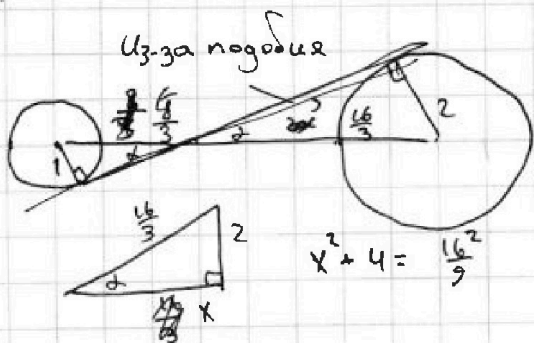 Из-за подобия
8/3
16/3
1
α
α
2
16/3
2
α
x
x² + 4 = 16²/9